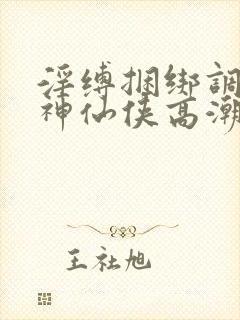 淫缚捆绑調
神仙侠高潮
王社旭